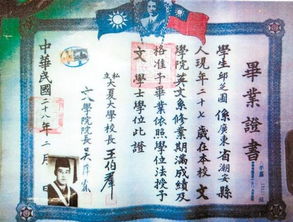 畢業證書
學生邱芝圃係廣東省潮安縣
人現年二十七歲在本校文
學院英文系修業期滿成績及
格准予畢業依照學位法授予
文學士學位此證
私立大夏大學校長王伯羣
文學院院長吳
中華民國二十八年二月 日